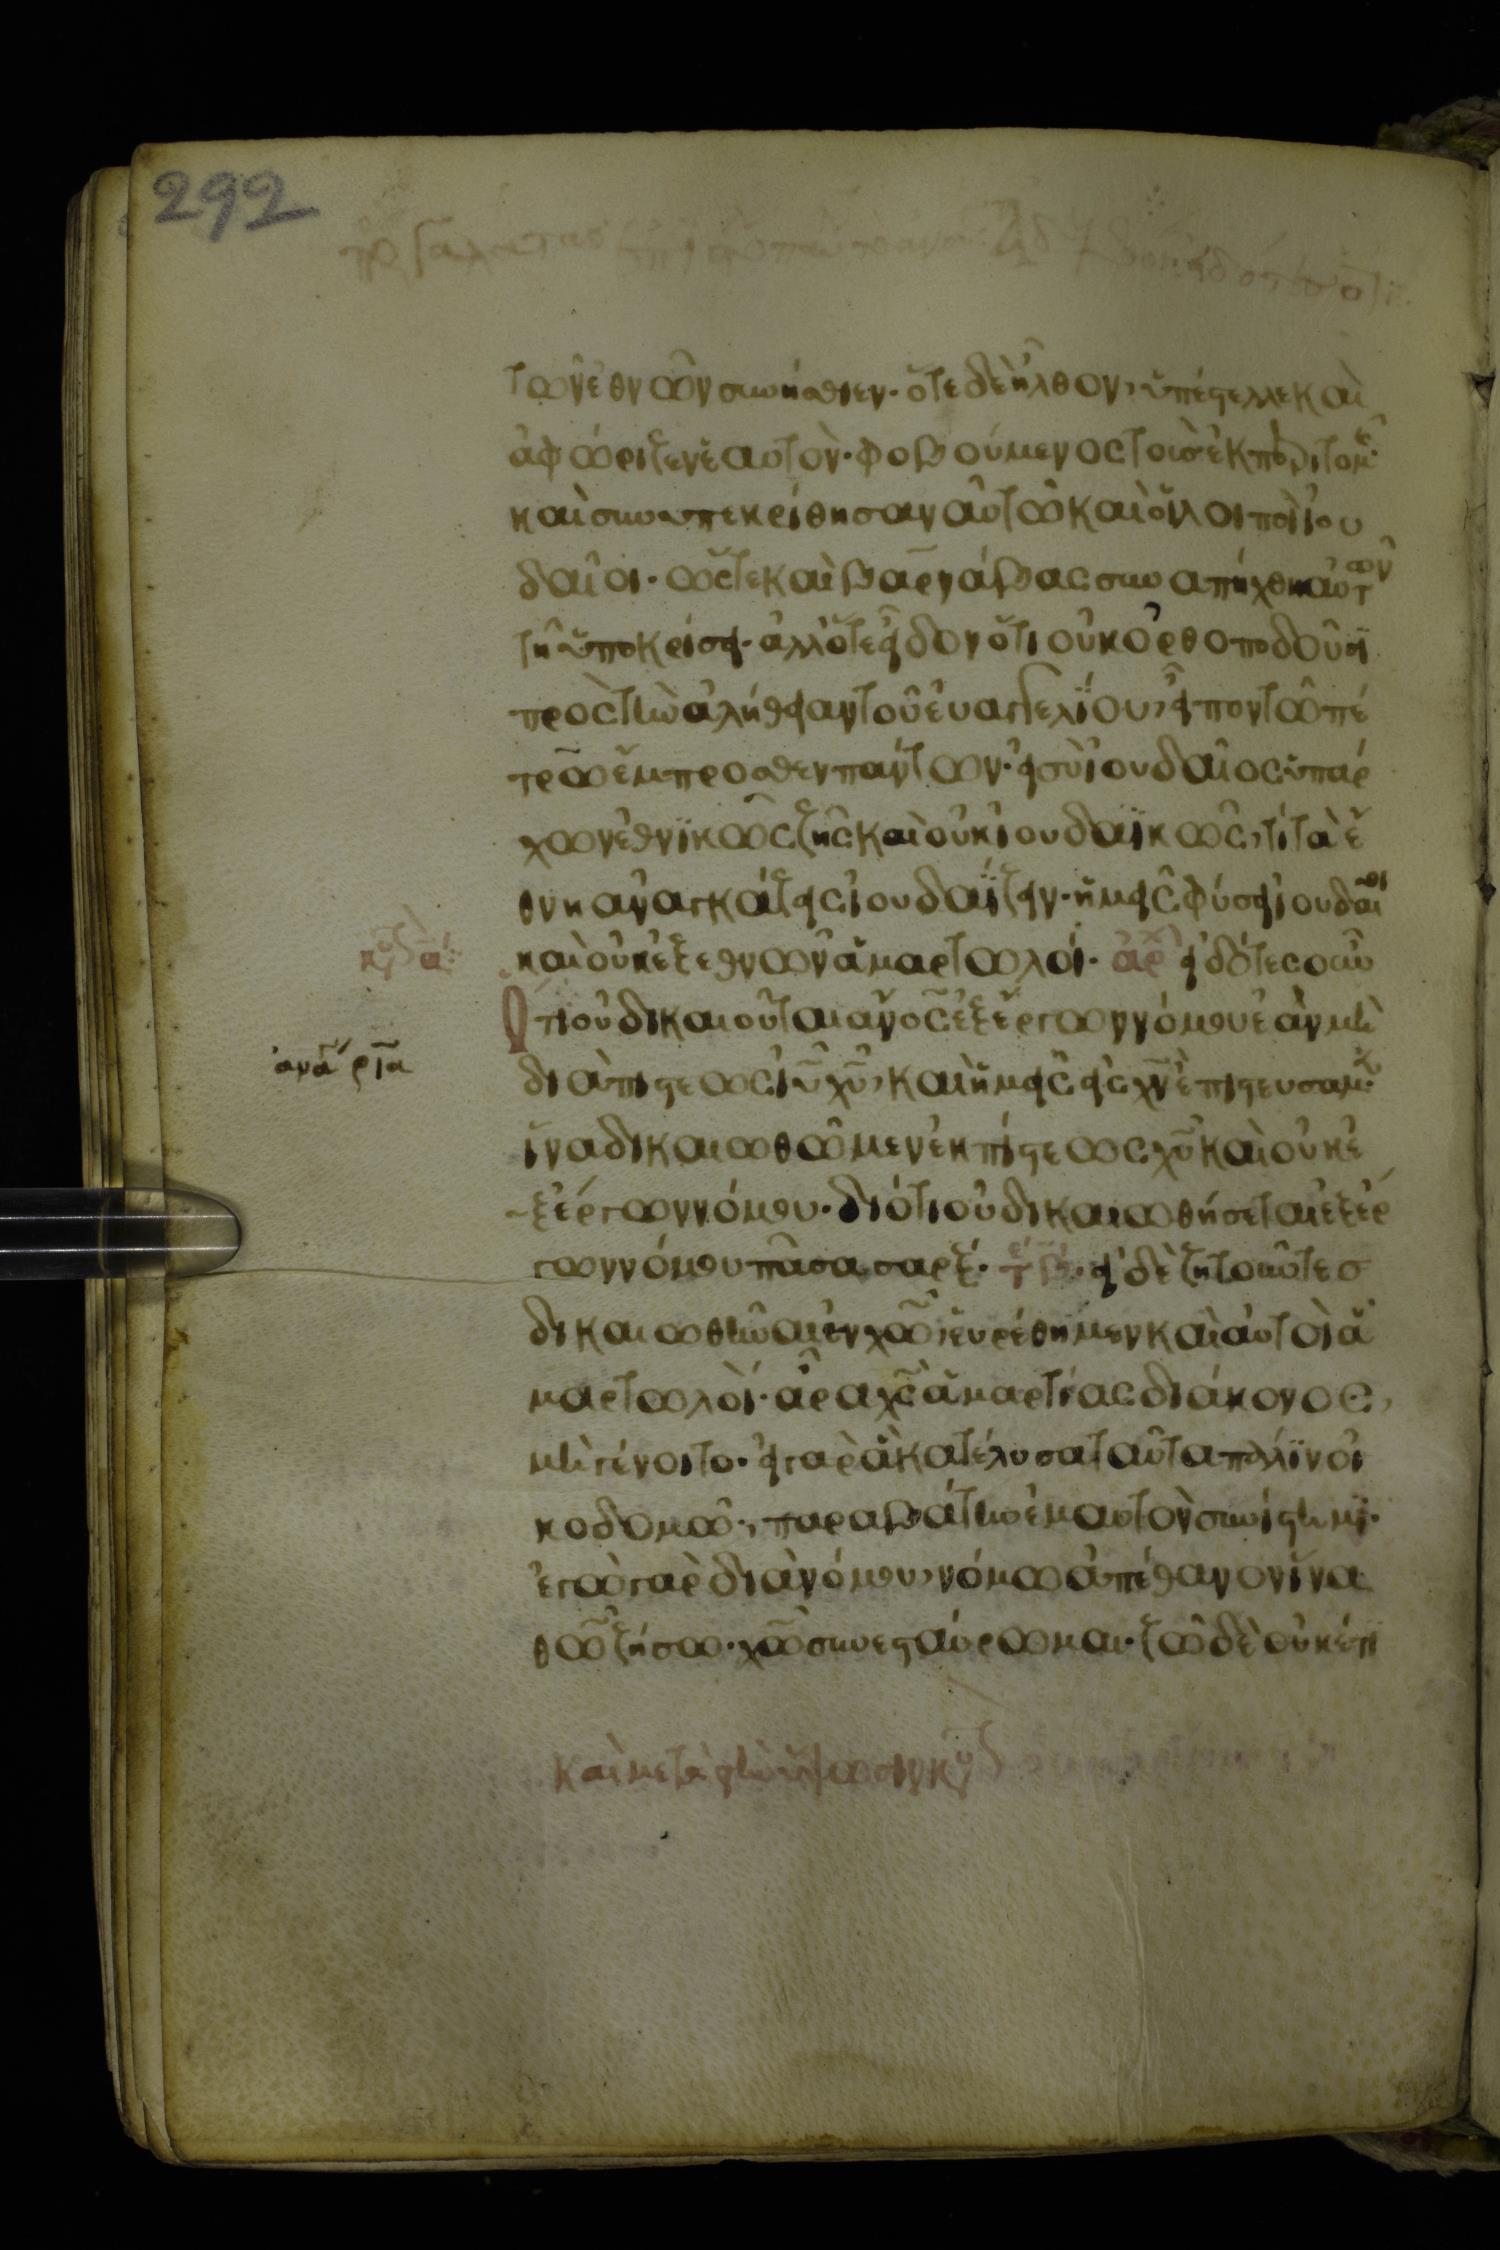 292
τῶν ἐθνῶν συνήσθιεν· ὅτε δὲ ἦλθον, ὑπέστελλε καὶ
ἀφώριζεν ἑαυτὸν· φοβούμενος τοὺς ἐκ περιτομῆς·
καὶ συνυπεκρίθησαν αὐτῶ καὶ οἱ λοιποὶ ἰου
δαῖοι· ὥστε καὶ βαρνάβας συναπήχθη αὐτῶν
τῆ ὑποκρίσει· ἀλλ' ὅτε εἶδον ὅτι οὐκ ὀρθοποδοῦσϊ
πρὸς τὴν ἀλήθειαν τοῦ εὐαγγελΐου, εἶπον τῶ πέ
τρω ἔμπροσθεν πάντων· εἰ σὺ ἰουδαῖος ὑπάρ
χων ἐθνϊκῶς ζῆς καὶ οὐκ ἰουδαϊκῶς, τί τὰ ἔ
θνη ἀναγκάζεις ἰουδαΐζειν· ἡμεῖς φύσει ἰουδαῖοι
καὶ οὐκ ἐξ ἐθνῶν ἁμαρτωλοί· ἀρχ εἰδότες οὖν
Ὅτι οὐ δικαιοῦται ἄνος ἐξ ἔργων νόμου ἐὰν μὴ
διὰ πίστεως ἰυ χυ, καὶ ἡμεῖς εἰς χν ἐπιστεύσαμεν
ἵνα δικαιωθῶμεν ἐκ πίστεως χυ καὶ οὐκ ἐ
ξ ἔργων νόμου· διότι οὐ δικαιωθήσεται ἐξ ἔρ
γων νόμου πᾶσα σάρξ· εἰ δὲ ζητοῦντες
δικαιωθῆναι ἐν χω, εὑρέθημεν καὶ αὐτοὶ ἁ
μαρτωλοὶ· ἆρα χς ἁμαρτίας διάκονος,
μὴ γένοιτο· εἰ γὰρ ἃ κατέλυσα ταῦτα πάλϊν οἰ
κοδομῶ, παραβάτην ἐμαυτὸν συνίστημϊ·
ἐγὼ γὰρ διὰ νόμου, νόμω ἀπέθανον ἵνα
θω ζήσω· χω συνεσταύρωμαι· ζῶ δὲ οὐκέτι